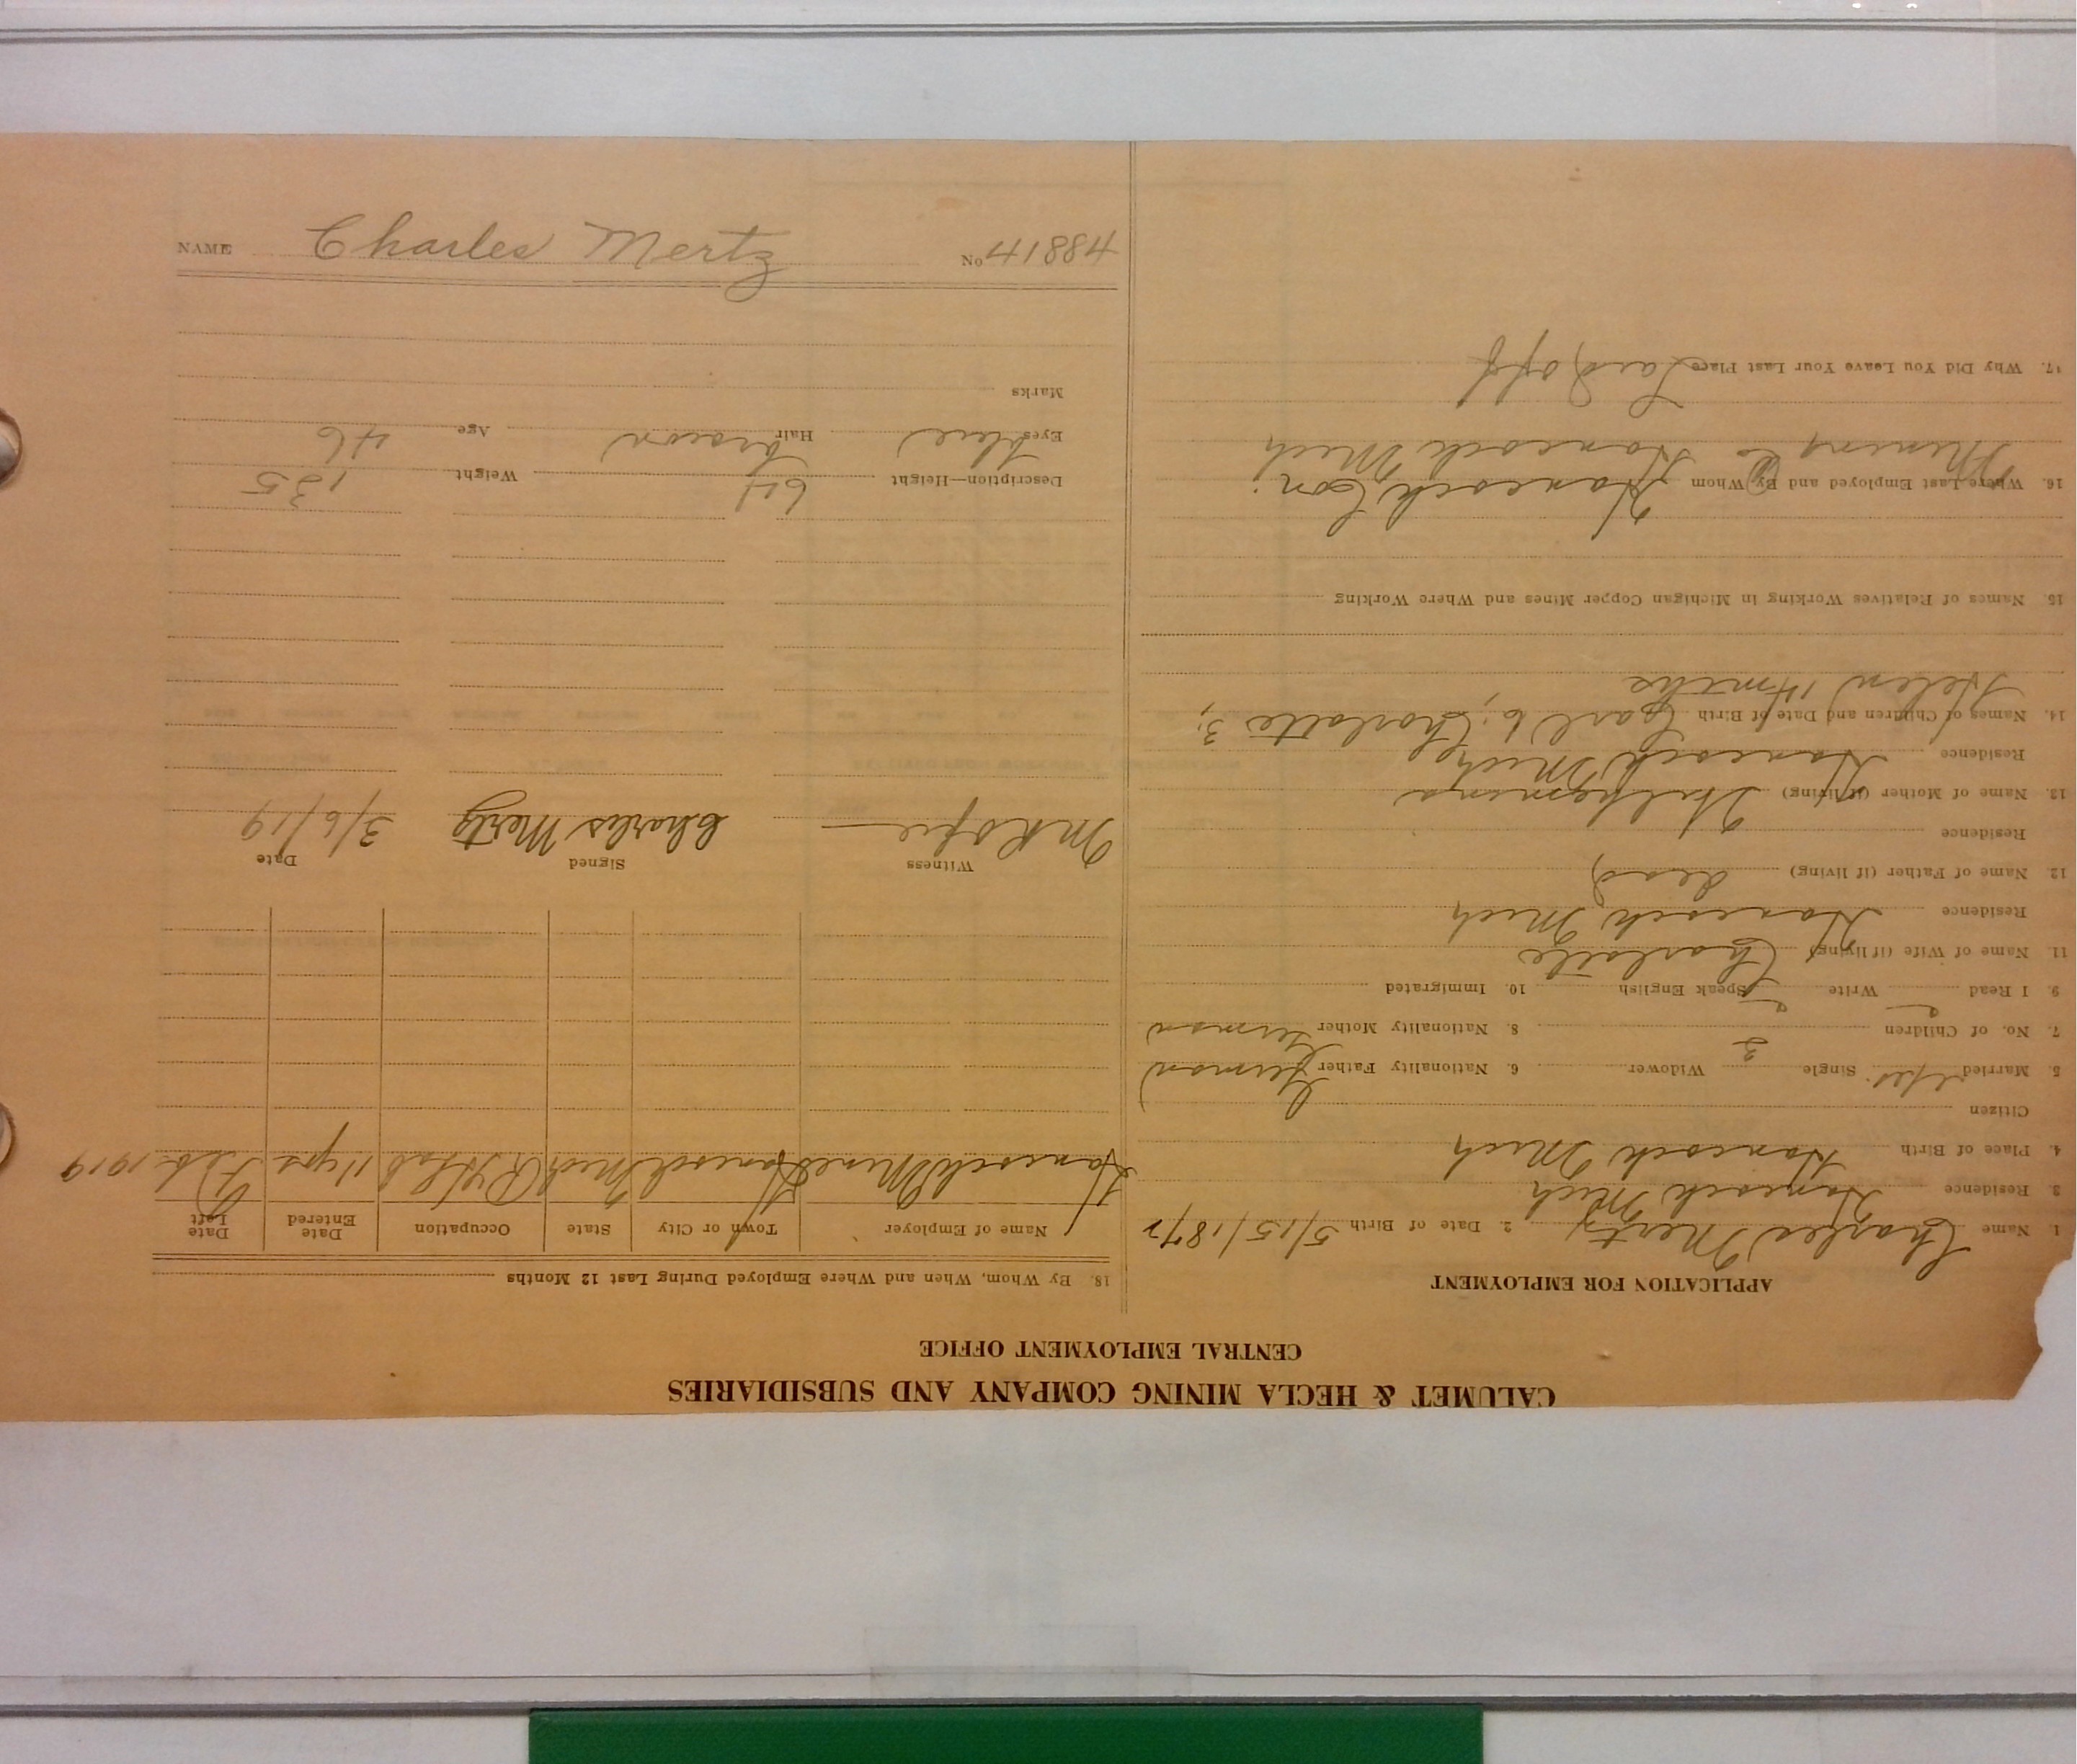 CALUMET & HECLA MINING COMPANY AND SUBSIDIARIES
CENTRAL EMPLOYMENT OFFICE
APPLICATION FOR EMPLOYMENT
1. Name Charles Mertz 2. Date of Birth 5/15/1872
3. Residence Hancock Mich
4. Place of Birth Hancock Mich
Citizen
5. Married Yes. Single Widower 6. Nationality Father German
7. No. of Children 3 8. Nationality Mother German
9. I Read Write Speak English 10. Immigrated
11. Name of Wife (if living) Charlotte
Residence Hancock Mich
12. Name of Father (if living) dead
Residence
13. Name of Mother (if living)
Residence Hancock Mich
14. Names of Children and Date of Birth Carl 6; Charlotte 3;
Helen 14 mths
15. Names of Relatives Working in Michigan Copper Mines and Where Working
16. Where Last Employed and By Whom Hancock Con.
Mining Co Hancock Mich
17. Why Did You Leave Your Last Place Laid off
18. By Whom, When and Where Employed During Last 12 Months
Name of Employer Town or City State Occupation Date Entered Date Left
Hancock Mine Hancock Mich 11 yrs Feb. 1919
Witness Signed Date
Charles Mertz 3/6/19
Description—Height 64 Weight 135
Eyes blue Hair brown Age 46
Marks
NAME Charles Mertz No 41884